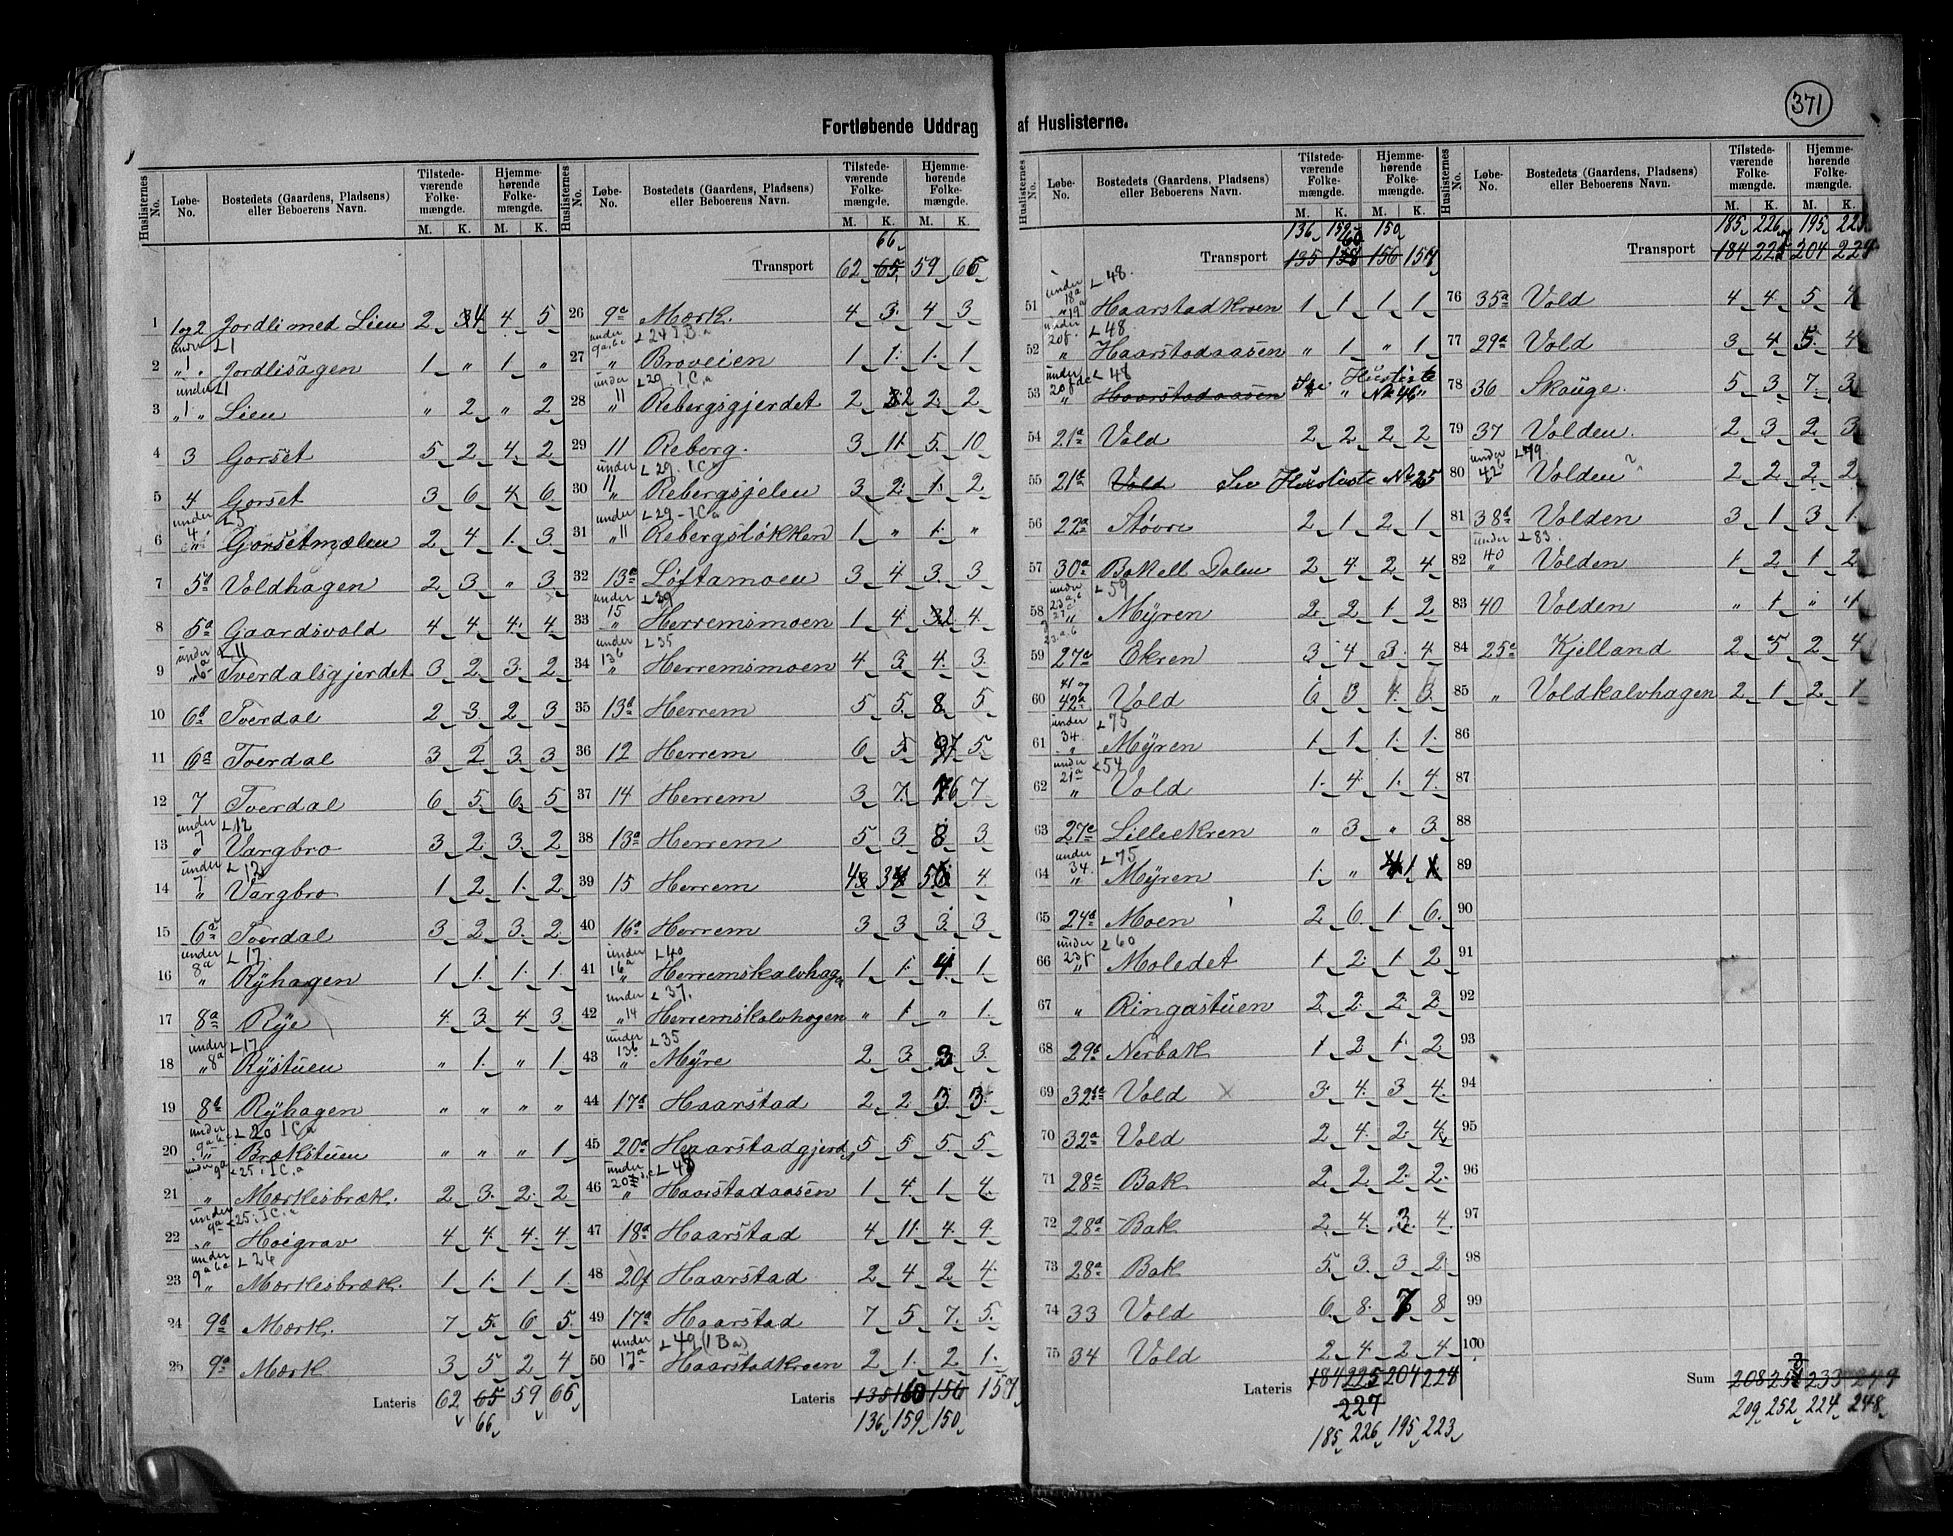 371
Fortløbende Uddrag af Huslisterne.
Huslisternes No. Løbe-No. Bostedets (Gaardens, Pladsens) eller Beboerens Navn. Tilstedeværende Folkemængde. M. K. Hjemmehørende Folkemængde. M. K.
1 1 og 2 Jordli med Lien 2 4 4 5
2 under L1 " 1 " Jordlisagen 1 " 1 "
3 under L1 " 1 " Lien " 2 " 2
4 3 Gorset 5 2 4 2
5 4 Gorset 3 6 4 6
6 under L5 4 " Gorsetmælen 2 4 1 3
7 5b Voldhagen 2 3 " 3
8 5a Gaardsvold 4 4 4 4
9 under L11 Tverdalsgjerdet 3 2 3 2
10 6b Tverdal 2 3 2 3
11 6a Tverdal 3 2 3 3
12 7 Tverdal 6 5 6 5
13 under L12 7 " Vargbro 3 2 3 2
14 under L12 7 " Vargbro 1 2 1 2
15 6a Tverdal 3 2 3 2
16 under L17 8a " Ryhagen 1 1 1 1
17 8a Rye 4 3 4 3
18 under L17 " 8a Rystuen " 1 " 1
19 8b Ryhagen " " " "
20 under L20 I C a Brækstuen " " " 1
21 under 9a L25 I C a " Mærkesbræk. 2 3 2 2
22 under 9a L25 I C a " Hoigrav 4 4 4 4
23 under L26 " Mærkesbræk. 1 1 1 1
24 9b Mærk. 7 5 6 5
25 9a Mærk 3 5 2 4
Lateris 62 65 59 66
66
Transport 62 65 59 66
66
26 9c Mærk. 4 3 4 3
27 under L24 I B a Broveien 1 1 1 1
28 under L29 I C a 11 " Rebergsgjerdet 2 2 2 2
29 11 Reberg. 3 11 5 10
30 under L29 I C a 11 " Rebergsjelen 3 2 1 2
31 under L29 - I C a " 11 Rebergsløkken 1 " 1 "
32 13c Loftamoen 3 4 3 3
33 under L39 15 " Herremsmoen 1 4 2 4
34 under L35 13b " Herremsmoen 4 3 4 3
35 13d Herrem 5 5 8 5
36 12 Herrem 6 5 7 5
37 14 Herrem 3 7 6 7
38 13a Herrem 5 3 8 3
39 15 Herrem 4 3 5 4
40 16a Herrem 3 3 3 3
41 under L40 16a " Herremskalvhag 1 1 4 1
42 under L37 " 14 Herremskalvhagen " 1 " 1
43 under L35 13b " Myre 2 3 3 3
44 17b Haarstad 2 2 3 3
45 20a Haarstadgjerd 5 5 5 5
46 under L48 " Haarstadaasen 1 4 1 4
47 18a Haarstad 4 11 4 9
48 20f Haarstad 2 4 2 4
49 17a Haarstad 7 5 7 5
50 under L49 (I B a) 17a Haarstadkroen 2 1 2 1
Lateris 135 160 156 157
136 159 150
136 159 150
Transport 135 138 156 157
51 under L48 18a Haarstadkroen 1 1 1 1
52 under L48 20f " Haarstadaasen " 1 " 1
53 under L48 " Haarstadaasen See Husliste No 46
54 21a Vold 2 2 2 2
55 21a Vold See Husliste No 25
56 22a Støvre 2 1 2 1
57 30a Bak ell Dalen 2 4 2 4
58 under L59 Myren 2 2 1 2
59 27a Ekren 3 4 3 4
60 41 og 42a Vold 6 3 4 3
61 under L75 34 " Myren 1 1 1 1
62 under L54 21a " Vold 1 4 1 4
63 27c Lilleekren " 3 " 3
64 under L75 34 " Myren 1 " 1
65 24a Moen 2 6 1 6
66 under L60 23f " Moledet 1 2 1 2
67 " Ringastuen 2 2 2 2
68 29b Nerbak 1 2 1 2
69 32b Vold 3 4 3 4
70 32a Vold 2 4 2 4
71 28c Bak 2 2 2 2
72 28d Bak 2 4 3 4
73 28a Bak 5 3 3 2
74 33 Vold 6 8 7 8
75 34 Vold 2 4 2 4
Lateris 184 225 204 228
227
185 226 195 223
185 226 195 223
Transport 184 225 204 224
76 35a Vold 4 4 5 4
77 29a Vold 3 4 5 4
78 36 Skauge. 5 3 7 3
79 37 Volden. 2 3 2 3
80 under L79 42b Volden 2 2 2 2
81 38b Volden 3 1 3 1
82 under L83 40 " Volden 1 2 1 2
83 40 Volden " 1 " 1
84 25a Kjelland 2 5 2 4
85 " Voldkalvhagen 2 1 2 1
86
87
88
89
90
91
92
93
94
95
96
97
98
99
100
Sum 208 233 249
209 252 224 248